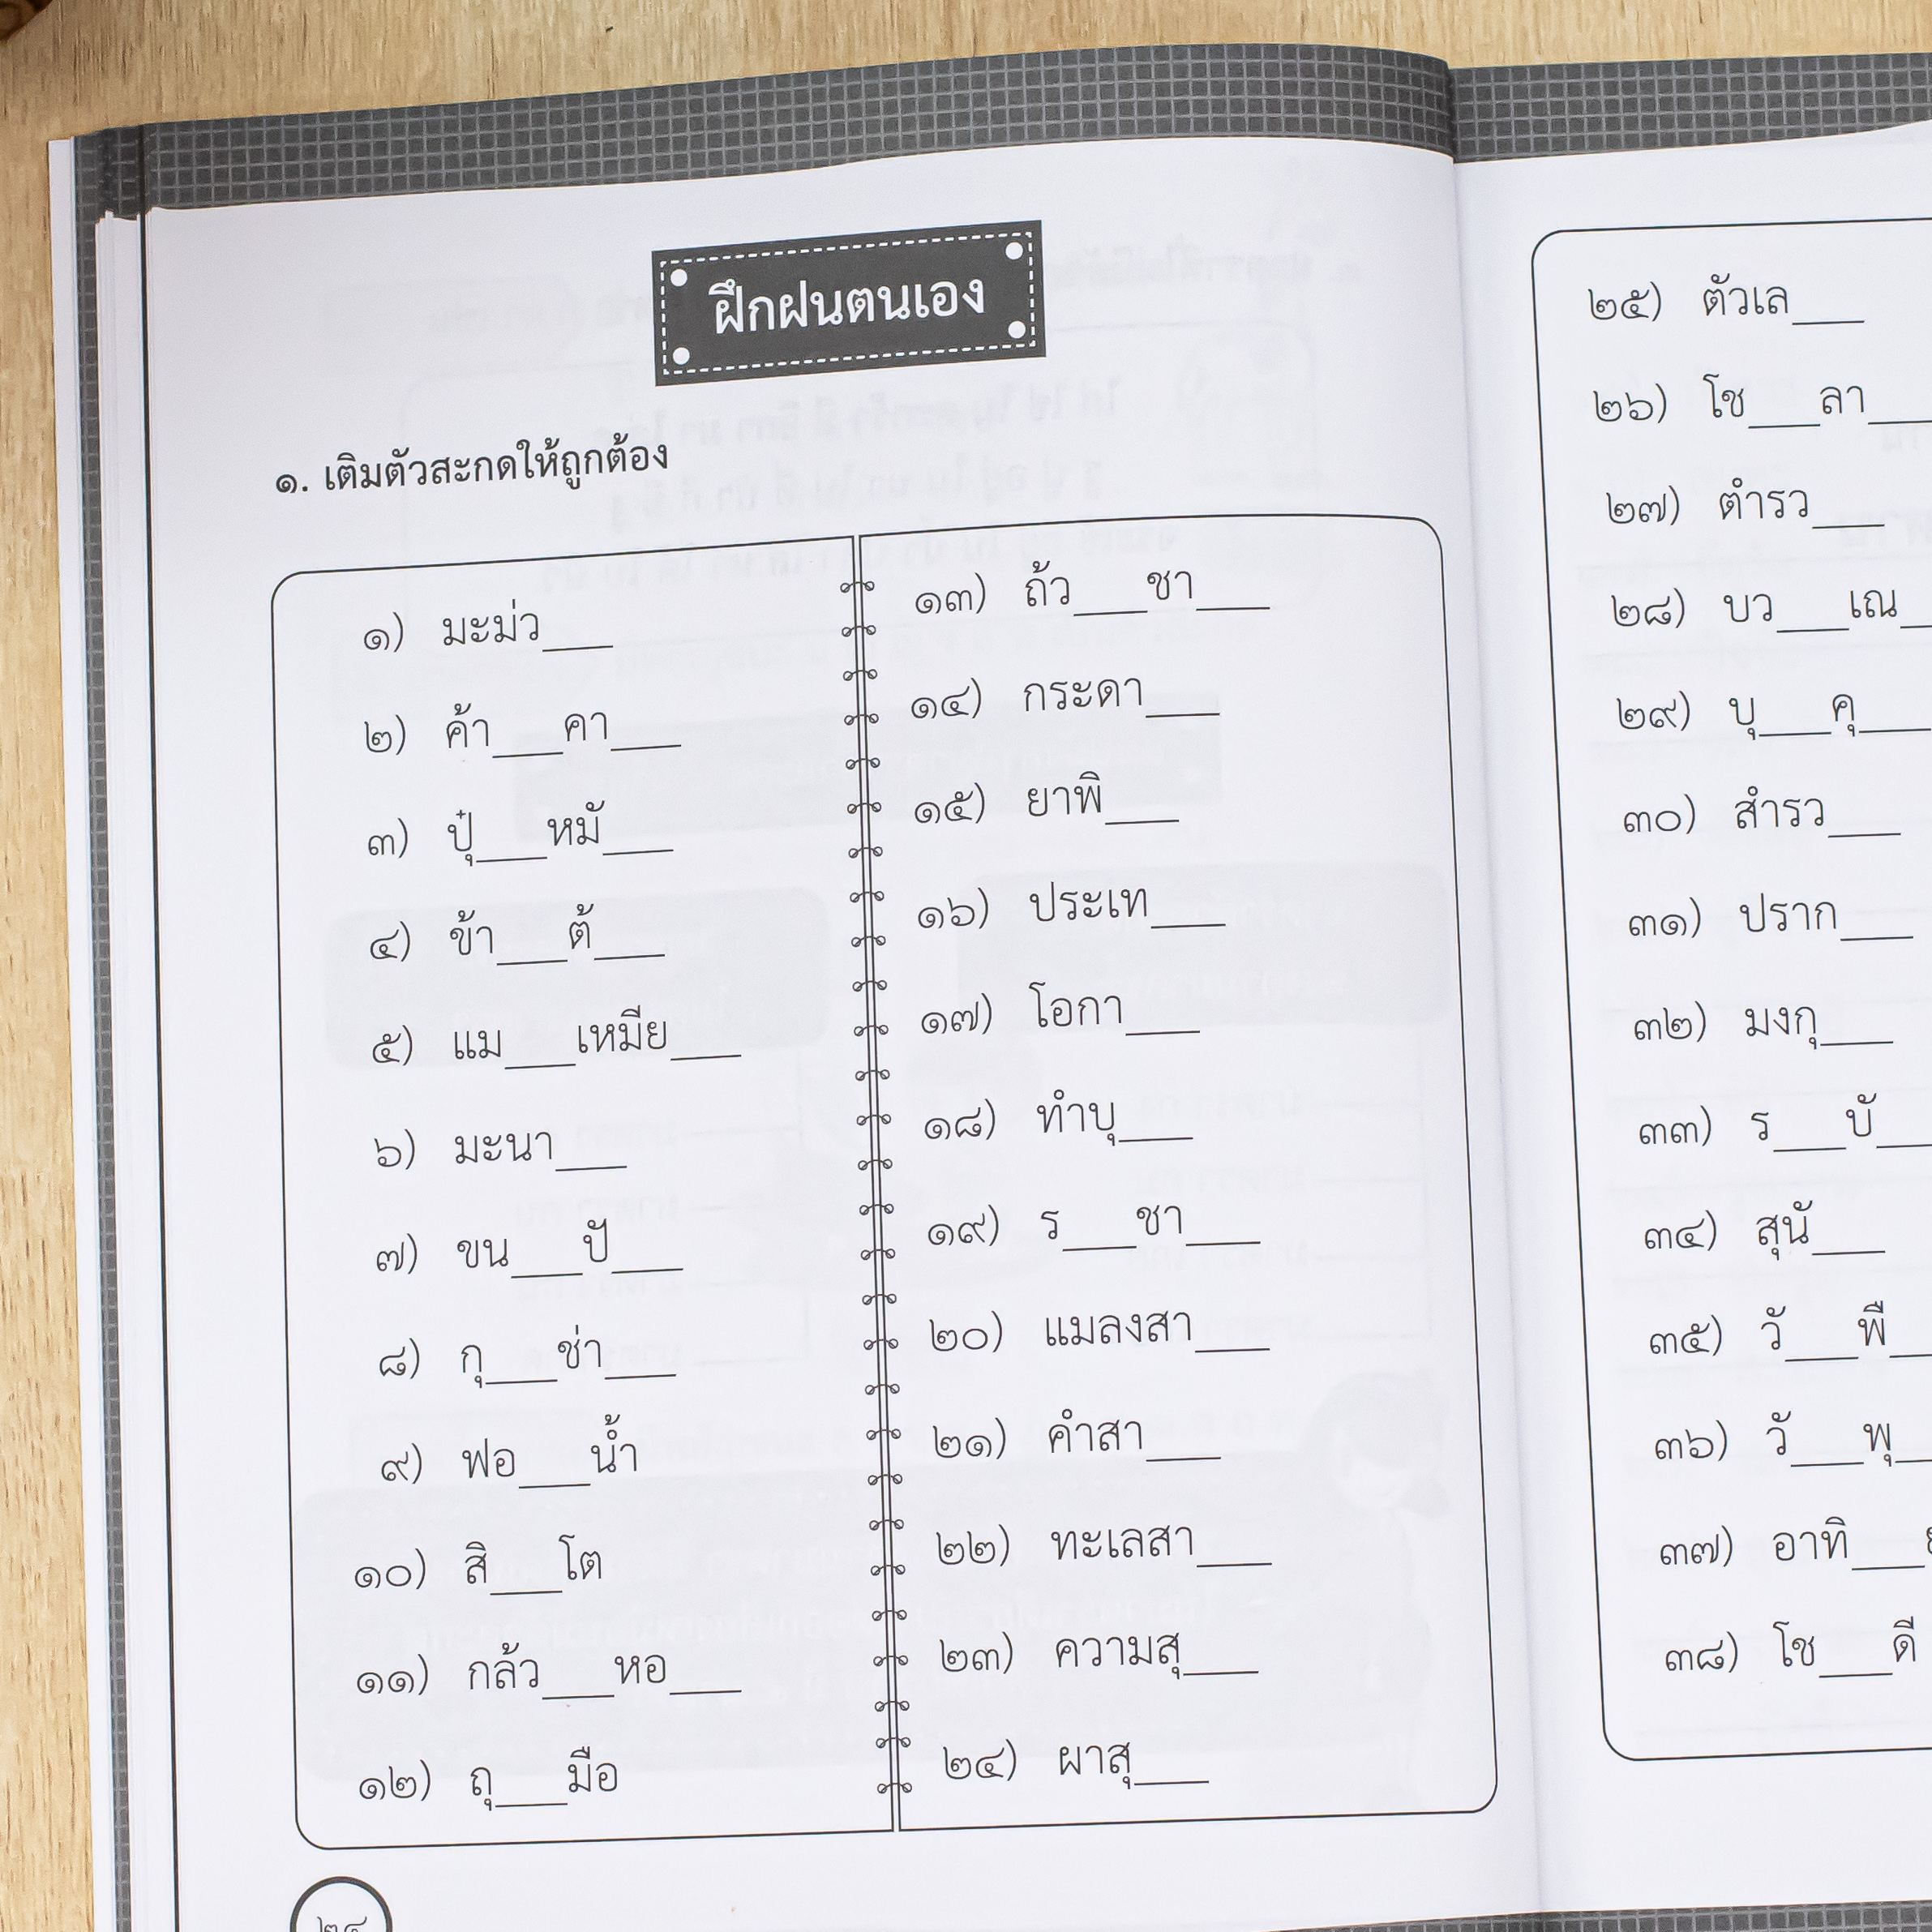 ฝึกฝนตนเอง
๑. เติมตัวสะกดให้ถูกต้อง
๑) มะม่ว___
๒) ค้า___คา___
๓) ปุ๋___หมั___
๔) ข้า___ต้___
๕) แม___เหมีย___
๖) มะนา___
๗) ขน___ปั___
๘) กุ___ช่า___
๙) ฟอ___น้ำ
๑๐) สิ___โต
๑๑) กล้ว___หอ___
๑๒) ถุ___มือ
๑๓) ถ้ว___ชา___
๑๔) กระดา___
๑๕) ยาพิ___
๑๖) ประเท___
๑๗) โอกา___
๑๘) ทำบุ___
๑๙) ร___ชา___
๒๐) แมลงสา___
๒๑) คำสา___
๒๒) ทะเลสา___
๒๓) ความสุ___
๒๔) ผาสุ___
๒๕) ตัวเล___
๒๖) โช___ลา___
๒๗) ตำรว___
๒๘) บว___เณ___
๒๙) บุ___คุ___
๓๐) สำรว___
๓๑) ปราก___
๓๒) มงกุ___
๓๓) ร___บั___
๓๔) สุนั___
๓๕) วั___พื___
๓๖) วั___พุ___
๓๗) อาทิ___
๓๘) โช___ดี